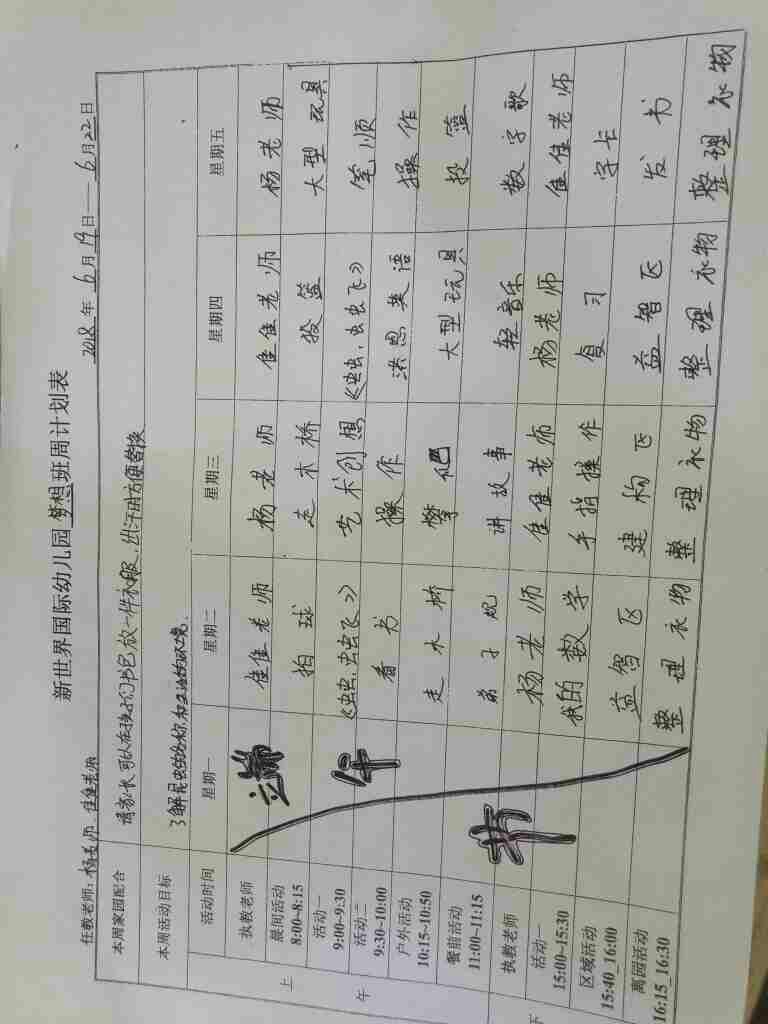 新世界国际幼儿园 梦想 班周计划表
任教老师：杨老师、佳佳老师 2018年6月19日——6月22日
本周家园配合 请家长可以在孩子们书包放一件衣服，出汗时方便替换
本周活动目标 了解昆虫的外形和生活的环境.
活动时间 星期一 星期二 星期三 星期四 星期五
上午
端午节
执教老师 佳佳老师 杨老师 佳佳老师 杨老师
晨间活动 拍球 走木桥 投篮 大型玩具
8:00~8:15
活动一 《虫虫，虫虫飞》 艺术创想 《虫虫，虫虫飞》 笔顺
9:00~9:30
活动二 看书 操作 洪恩英语 操作
9:30~10:00
户外活动 走木桥 攀爬 大型玩具 投篮
10:15~10:50
餐前活动 弟子规 讲故事 轻音乐 数字歌
11:00~11:15
下
执教老师 杨老师 佳佳老师 杨老师 佳佳老师
活动一 我的数学 手指操作 复习 字卡
15:00~15:30
区域活动 益智区 建构区 益智区 发书
15:40_16:00
离园活动 整理衣物 整理衣物 整理衣物 整理衣物
16:15_16:30